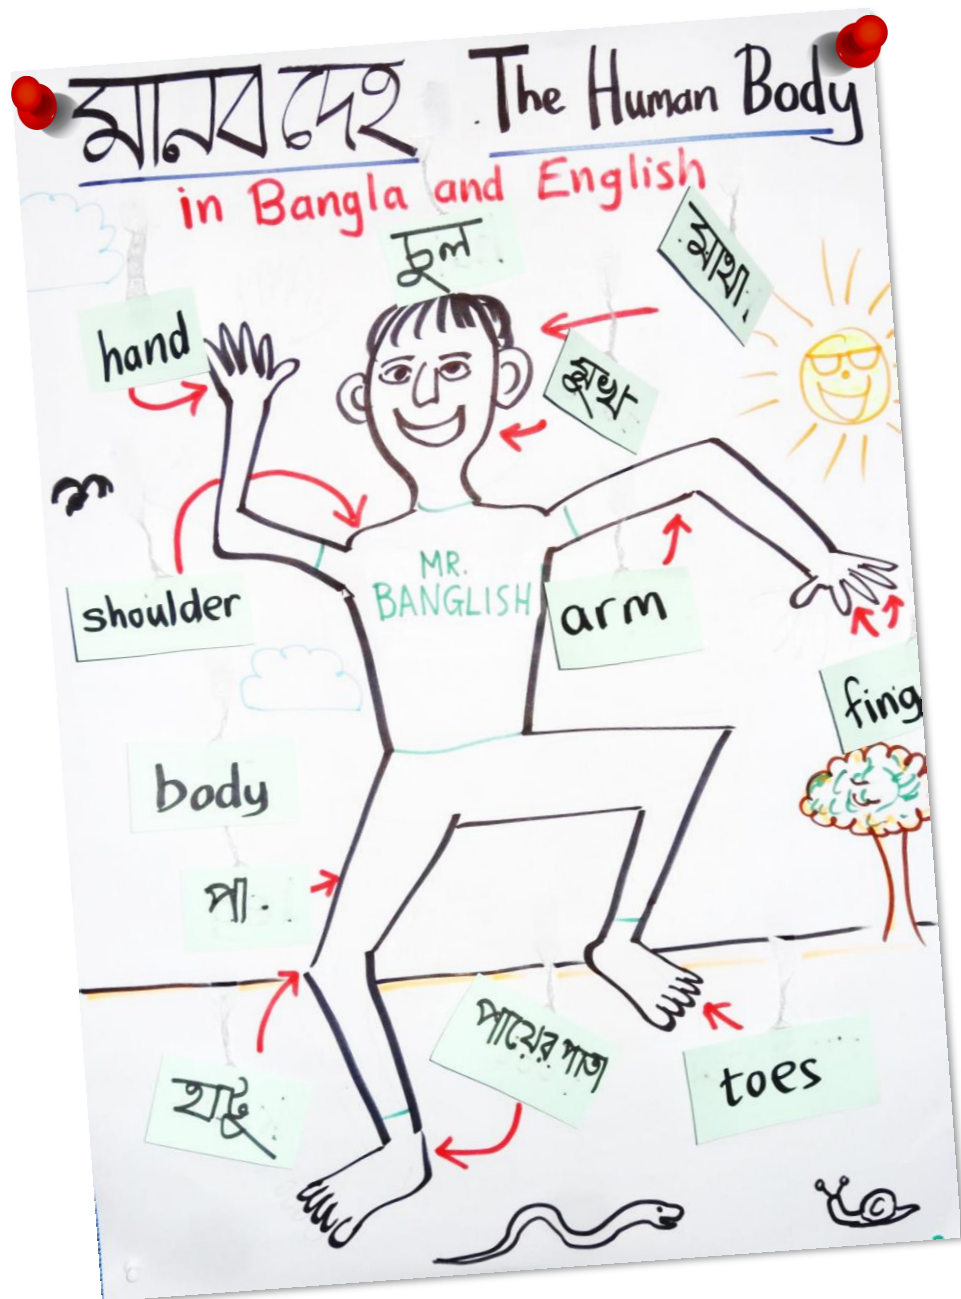 মানব দেহ The Human Body
in Bangla and English
চুল
মাথা
hand
মুখ
MR.
BANGLISH
shoulder
arm
fing
body
পা
হাটু
পায়ের পাতা
toes